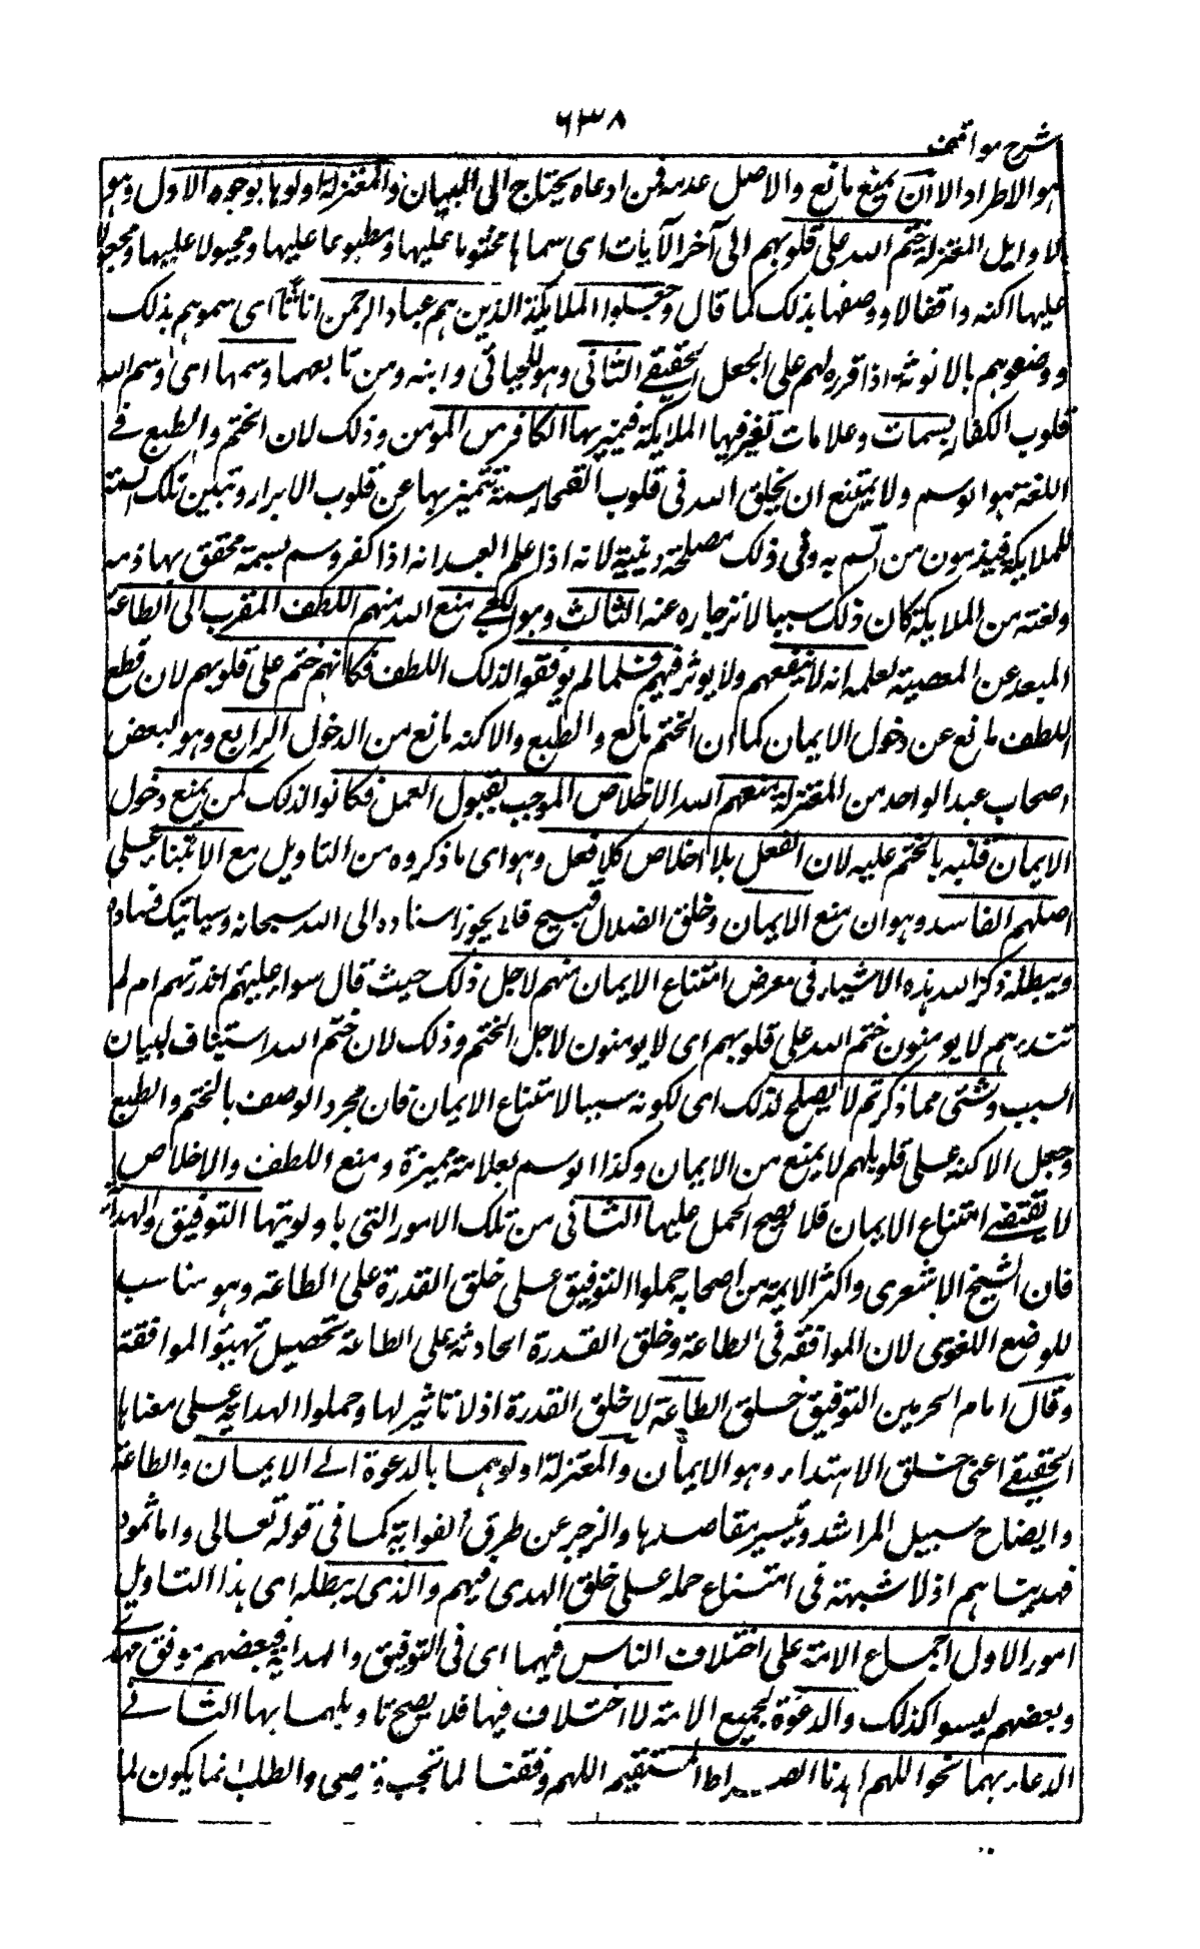 ٦٣٨
شرح مواقف
هو الاطراد الا ان يمنع مانع والاصل عدمه فمن ادعاه يحتاج الى البيان والمعتزلة اولوها بوجوه الاول وهو
لاوايل المعتزلة ختم الله على قلوبهم الى آخر الآيات اى سماها مختوما عليها ومطبوعا عليها ومجبولا عليها ومجعولا
عليها اكنه واقفالا ووصفها بذلك كما قال وجعلوا الملايكة الذين هم عباد الرحمن اناثا اى سموهم بذلك
ووضعوهم بالانوثه اذا قرره لهم على الجعل الحقيقے الثانى وهو للجبائى وابنه ومن تابعهما وسمها اى وسم الله
قلوب الكفار بسمات وعلامات تعرفها الملايكة فيتميز بها الكافر من المومن وذلك لان الختم والطبع فے
اللغة هو الوسم ولا يمتنع ان يخلق الله فى قلوب الفجار سمة تتميز بها عن قلوب الابرار وتبين تلك السمة
للملايكة فيذمون من تسم به وفى ذلك مصلحة دينية لانه اذا علم العبد انه اذا كفر وسم بسمة محقق بها ذمه
ولعنه من الملايكة كان ذلك سببا لانزجاره عنه الثالث وهو للكعبے منع الله منهم اللطف المقرب الى الطاعة
المبعد عن المعصية لعلمه انه لا ينفعهم ولا يوثر فيهم فلما لم يوفقوا لذلك اللطف فكانهم ختم على قلوبهم لان قطع
اللطف مانع عن دخول الايمان كما ان الختم مانع والطبع والاكنه مانع من الدخول الرابع وهو لبعض
اصحاب عبد الواحد من المعتزلة منعهم الله الاخلاص الموجب لقبول العمل فكانوا لذلك كمن يمنع دخول
الايمان قلبه بالختم عليه لان الفعل بلا اخلاص كلا فعل وهو اى ما ذكروه من التاويل مع الابتناء على
اصلهم الفاسد وهو ان منع الايمان وخلق الضلال قبيح فلا يجوز اسناده الى الله سبحانه وسياتيك فساده
ويبطله ذكر الله هذه الاشياء فى معرض امتناع الايمان منهم لاجل ذلك حيث قال سواء عليهم انذرتهم ام لم
تنذرهم لا يومنون ختم الله على قلوبهم اى لا يومنون لاجل الختم وذلك لان ختم الله استيناف لبيان
السبب وشئ مما ذكرتم لا يصلح لذلك اى لكونه سببا لامتناع الايمان فان مجرد الوصف بالختم والطبع
وجعل الاكنه على قلوبهم لا يمنع من الايمان وكذا الوسم بعلامة مميزة ومنع اللطف والاخلاص
لا يقتضے امتناع الايمان فلا يصح الحمل عليها الثانى من تلك الامور التى باولويتها التوفيق والهداية
فان الشيخ الاشعرى واكثر الايمة من اصحابه حملوا التوفيق على خلق القدرة على الطاعة وهو مناسب
للوضع اللغوى لان الموافقه فى الطاعة وخلق القدرة الحادثة على الطاعة تحصيل تهيئو الموافقة
وقال امام الحرمين التوفيق خلق الطاعة لا خلق القدرة اذ لا تاثير لها وحملوا الهداية على معناها
الحقيقے اعنى خلق الاهتداء وهو الايمان والمعتزلة اولوهما بالدعوة الے الايمان والطاعة
وايضاح سبيل المراشد وتيسير مقاصدها والزجر عن طرق الغواية كما فى قوله تعالى واما ثمود
فهديناهم اذ لا شبهة فى امتناع حمله على خلق الهدى فيهم والذى يبطله اى هذا التاويل
امور الاول اجماع الامة على اختلاف الناس فيهما اى فى التوفيق والهداية فبعضهم موفق مهدے
وبعضهم ليسوا كذلك والدعوة لجميع الامة لا اختلاف فيها فلا يصح تاويلهما بها الثانے
الدعاء بهما نحو اللهم اهدنا الصراط المستقيم اللهم وفقنا لما تحب وترضى والطلب انما يكون لما